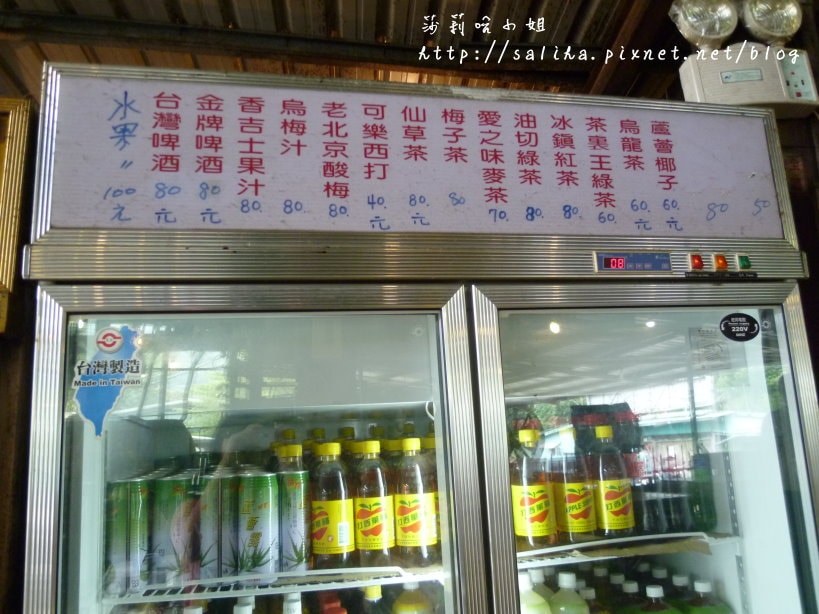 莎莉哈小姐
http://saliha.pixnet.net/blog
水果〃 100元
台灣啤酒 80元
金牌啤酒 80元
香吉士果汁 80.
烏梅汁 80.
老北京酸梅 80.
可樂西打 40.元
仙草茶 80.元
梅子茶 80
愛之味麥茶 70.
油切綠茶 80.
冰鎮紅茶 80.
茶裏王綠茶 60.
烏龍茶 60.元
蘆薈椰子 60.元
80
50
08
220V
台灣製造
Made in Taiwan